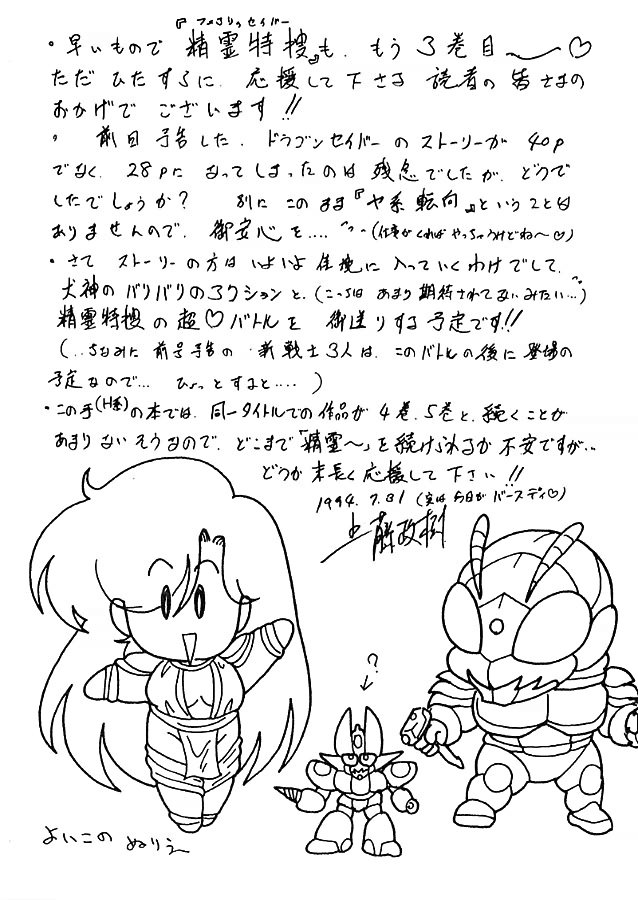 『フェアリィセイバー
・早いもので 精霊特捜』も、もう 3巻目〜〜♡
ただ ひたすらに、応援して下さる 読者の 皆さまの
おかげで ございます!!
・ 前回 予告した、ドラゴンセイバーの ストーリーが 40p
でなく、28pに なってしまったのは 残念でしたが、どうで
したでしょうか? 別に このまま『ヤ系転向』ということは
ありませんので、御安心を…… (仕事がくれば やっちゃうけどね〜♡)
・さて ストーリーの方は いよいよ 佳境に 入っていくわけでして、
犬神の バリバリの アクションと、(こっちは あまり 期待されてないみたい…)
精霊特捜の 超♡バトルを 御送りする予定です!!
(…ちなみに 前号予告の 新戦士3人は、このバトルの後に 登場の
予定なので… ひょっとすると…… )
・この手(H系)の本では、同一タイトルでの作品が 4巻、5巻と、続くことが
あまり ないそうなので、どこまで「精霊〜」を続けられるか 不安ですが…
どうか 末長く 応援して下さい!!
1994.7.31 (実は 今日が バースディ♡)
?
よいこの ぬりえ